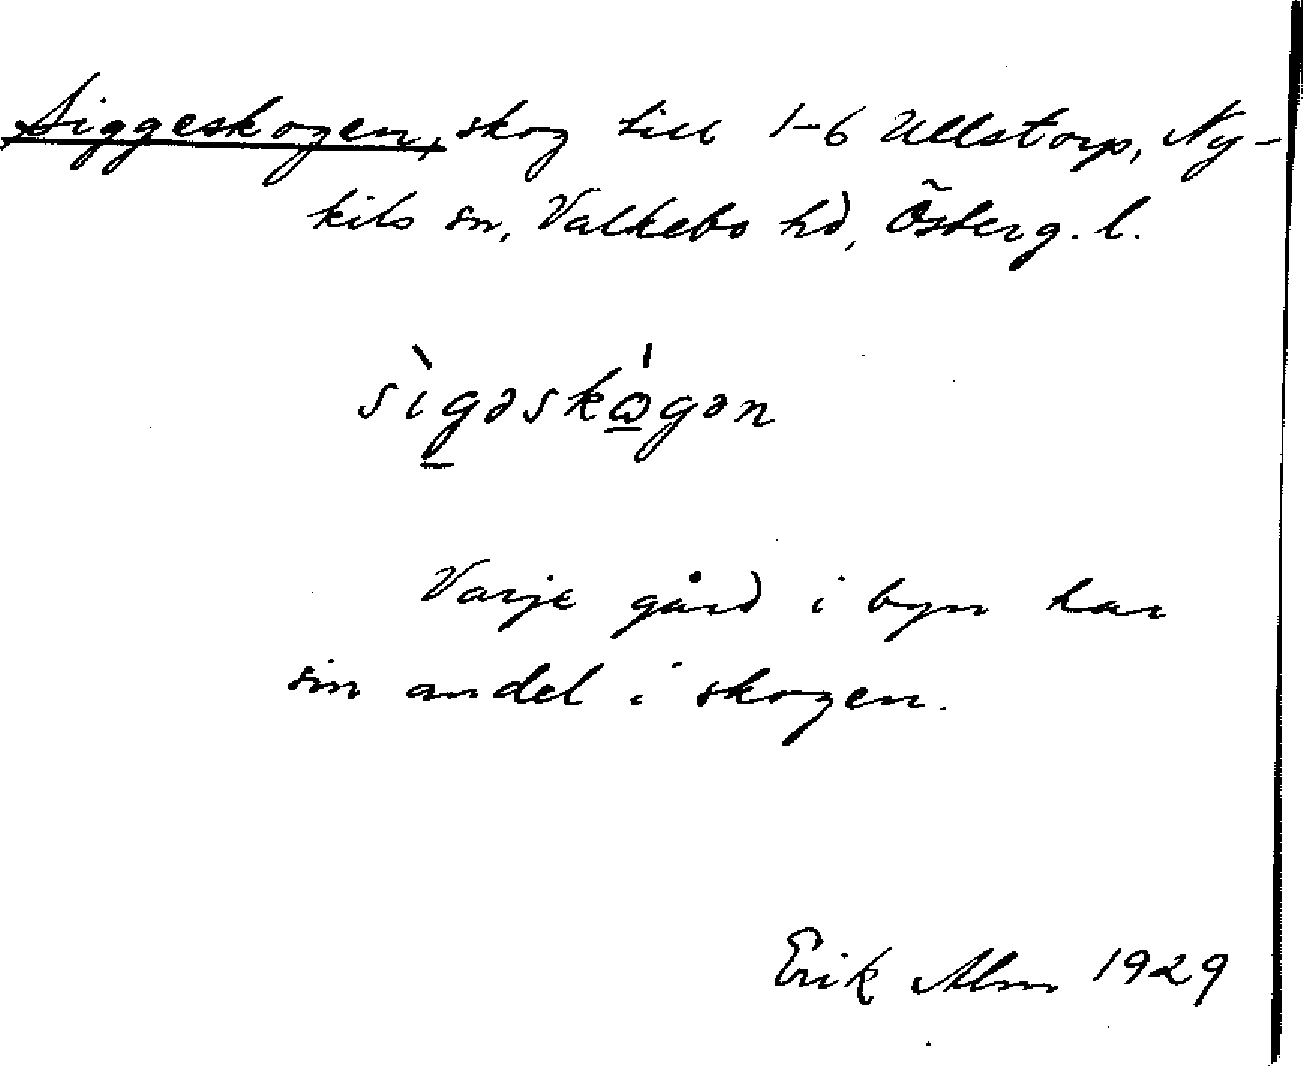 Siggeskogen, skog till 1-6 Ullstorp, Ny-
kils sn, Valkebo hd, Österg. l.
sìg̲əskɷ̲́gən
Varje gård i byn har
sin andel i skogen.
Erik Alm 1929